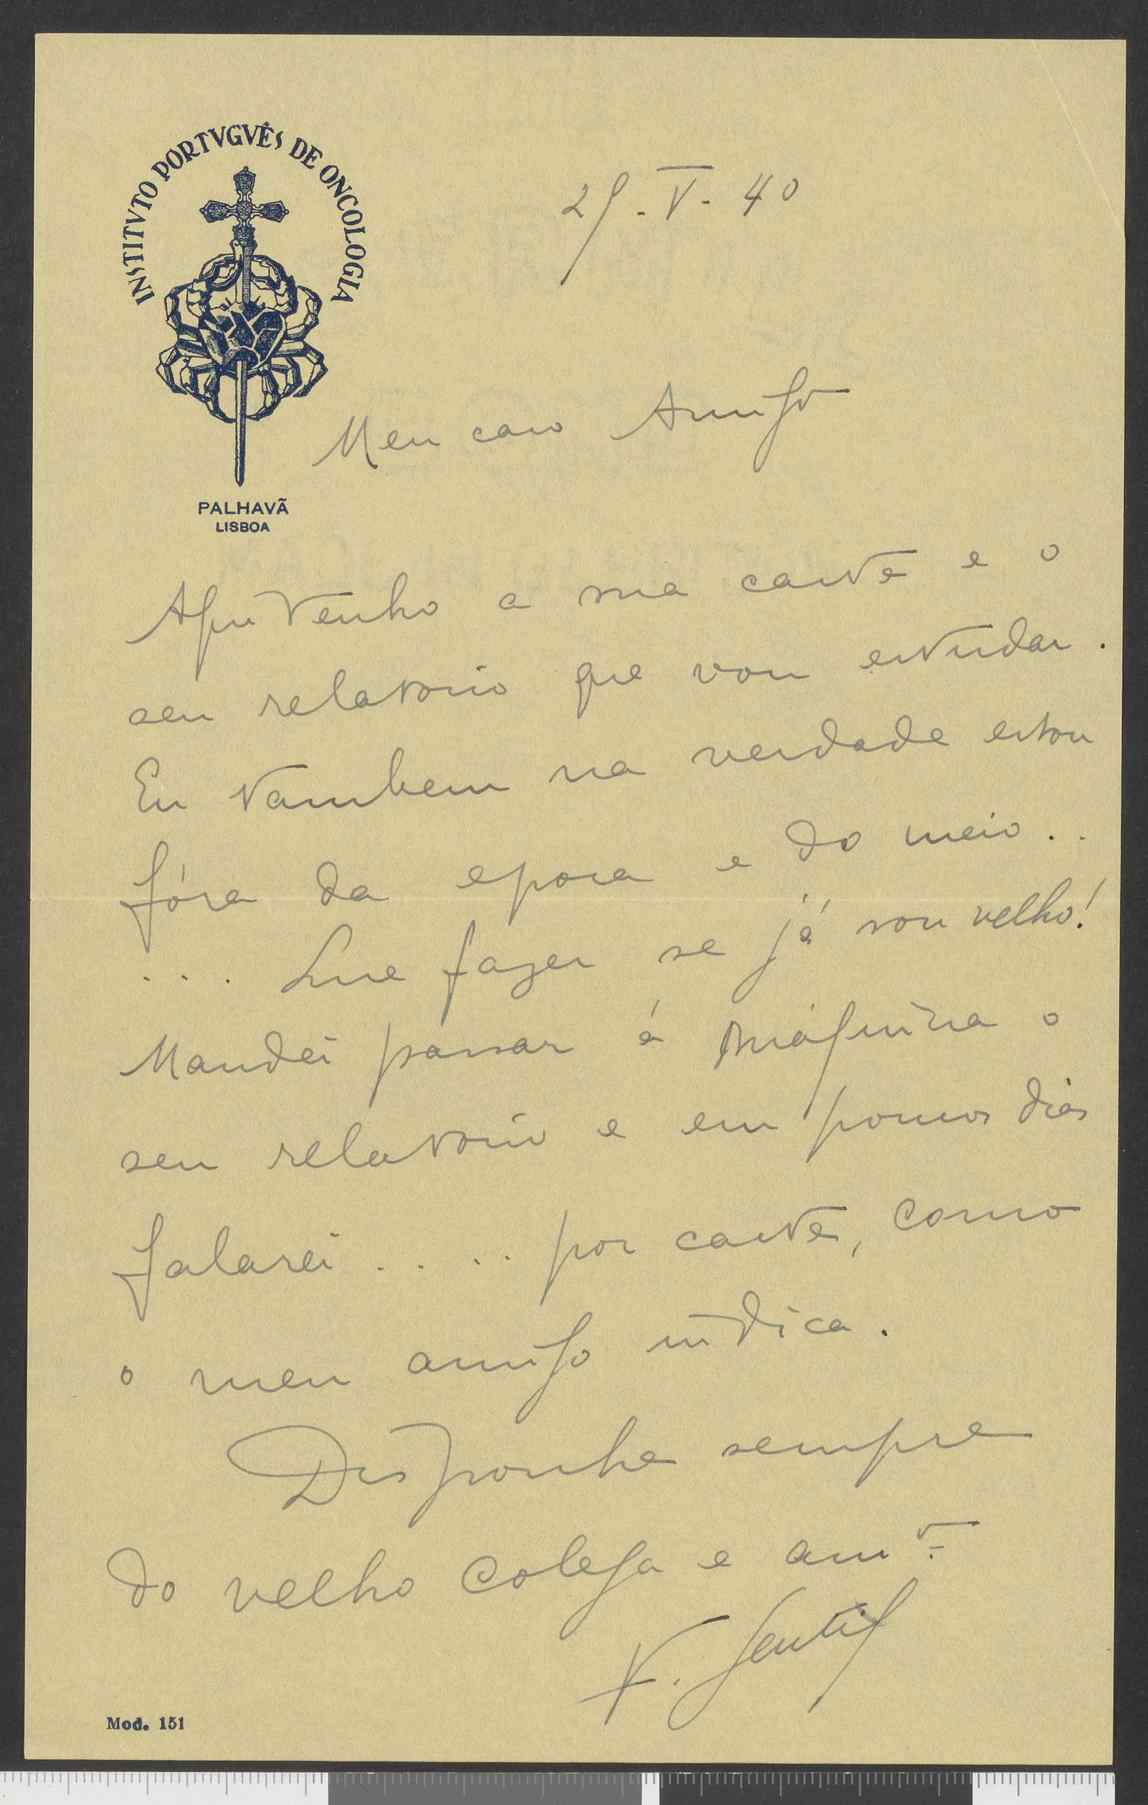 INSTITVTO PORTVGVÊS DE ONCOLOGIA
PALHAVÃ
LISBOA
29-V-40
Meu caro Amigo
Aqui tenho a sua carta e o
seu relatorio que vou estudar.
Eu tambem na verdade estou
fóra da epoca e do meio..
... Que fazer se já sou velho!
Mandei passar á máquina o
seu relatorio e em poucos dias
falarei .... por carta, como
o meu amigo indica.
Disponha sempre
do velho colega e am.º
F. Gentil
Mod. 151